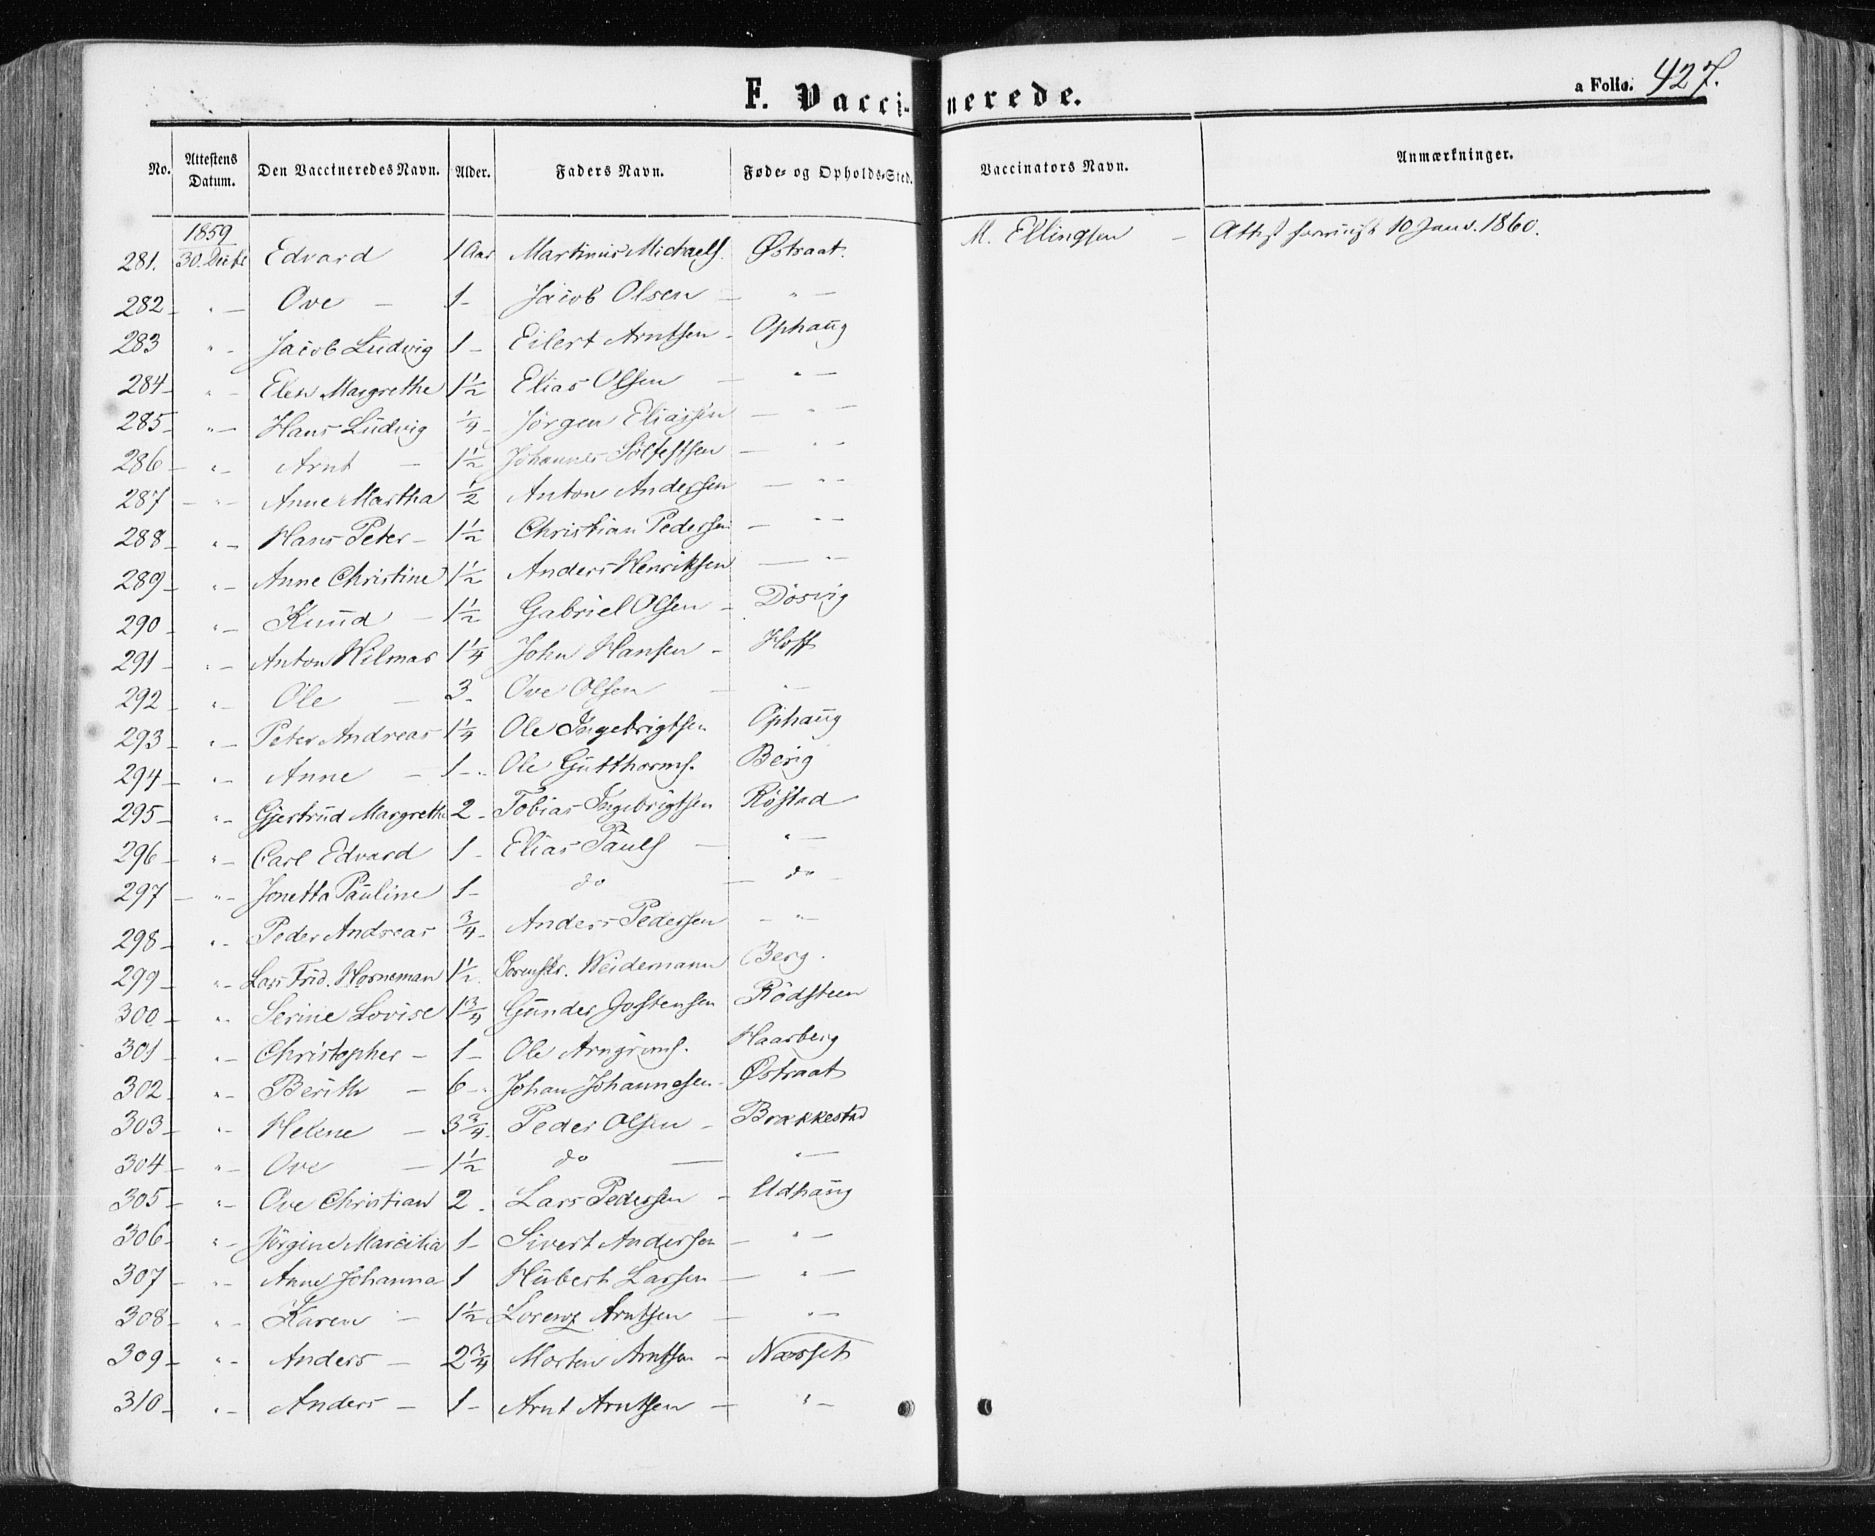 F. Vaccinerede.
a Folio. 427.
No. Attestens Datum. Den Vaccineredes Navn. Alder. Faders Navn. Føde- og Opholds-Sted. Vaccinators Navn. Anmærkninger.
1859
281. 30. Edvard 1 Aar Martinus Michaels. Østraat. M. Ellingsen - Attest 10 Janv. 1860.
282 - " - Ove - 1 - Jacob Olsen - " -
283 " - Jacob Ludvig 1 - Eilert Arntsen - Ophaug
284 - " - Elen Margrethe 1½ Elias Olsen - " -
285 - " - Hans Ludvig ¼ - Jørgen Eliassen - " -
286 - " - Arnt - 1½ Johannes - " -
287 - " - Anne Martha ½ Anton Andersen - " -
288 - " - Hans Peter - 1½ Christian Pedersen - " -
289 - " - Anne Christine 1½ Anders Henriksen - " -
290 - " - Knud - 1½ Gabriel Olsen - Døsvig
291 - " - Anton Hilmar 1¼ John Hansen - Hoff
292 - " - Ole - 3. Ove Olsen - " -
293 - " - Peter Andreas 1¼ Ole Ingebrigtsen Ophaug
294 - " - Anne - 1 - Ole Gutthorms. Berg
295 - " - Gjertrud Margrethe 2 - Tobias Ingebrigtsen Røstad
296 - " - Carl Edvard 1 - Elias Pauls - " -
297 - " - Jonetta Pauline 1 - do - do -
298 - " - Peder Andreas ¾ - Anders Pedersen - " -
299 - " - Lars Frid. Horneman 1½. Weidemann Berg.
300 - " - Serine Lovise 1¾ Gunder Jostensen Rödsteen
301 - " - Christopher - 1 - Ole Arngrims. Haarberg
302 - " - Berith - 6 - Johan Johannesen - Østraat
303 - " - Helene - 3¾. Peder Olsen - Brækkestad
304 - " - Ove - 1½ do - " -
305 - " - Ove Christian 2 - Lars Pedersen - Udhaug
306 - " - Jørgine 1 - Sivert Andersen - " -
307 - " - Anne Johanna 1 Hubert Larsen - " -
308 - " - Karen - 1½ Lorenz Arntsen - " -
309 - " - Anders - 2¾ Morten Arntsen - Næsset
310 - " - Anders - 1 - Arnt Arntsen - " -